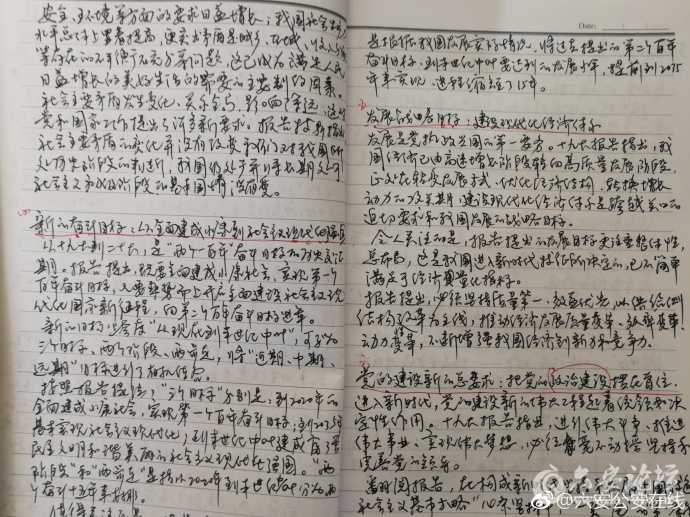 安全、环境等方面的要求日益增长；我国社会生产
水平总体上显著提高，更突出的问题是城乡、区域、收入分配
等存在的不平衡不充分问题，这已成为满足人民
日益增长的美好生活的需要的主要制约因素。
社会主要矛盾发生变化，关系全局，影响深远，这
党和国家工作提出了许多新要求。报告特别指出
社会主要矛盾的变化并没有改变我们对我国所
处历史阶段的判断，我国仍处于并将长期处于
社会主义初级阶段的基本国情没有变。
新的奋斗目标：从全面建成小康到社会主义现代化强国
从十九大到二十大，是“两个一百年”奋斗目标的历史交汇
期。报告提出，既要全面建成小康社会、实现第一个
百年奋斗目标，又要乘势而上开启全面建设社会主义现
代化国家新征程，向第二个百年奋斗目标进军。
新的目标，“从现在到本世纪中叶”，可分为
三个目标、两个阶段、两步走，将“近期、中期、
远期”目标进行了有机结合。
按照报告提法，“三个目标”分别是：到2020年
全面建成小康社会，实现第一个百年奋斗目标；到2035年
基本实现社会主义现代化；到本世纪中叶建成富强
民主文明和谐美丽的社会主义现代化强国。“两
阶段”和“两步走”是指从2020年到本世纪中叶分为两
个奋斗十五年来安排。
Date:
是根据我国发展实际情况，将过去提出的第二个百年
奋斗目标，到本世纪中叶要达到的发展水平，提前到2035
年来实现，进程缩短了15年。
发展战略目标：建设现代化经济体系
发展是党执政兴国的第一要务。十九大报告提出，我
国经济已由高速增长阶段转向高质量发展阶段，
正处在转变发展方式、优化经济结构、转换增长
动力的攻关期，建设现代化经济体系是跨越关口的
迫切要求和我国发展的战略目标。
令人关注的是，报告提出的发展目标更注重整体性，
这是我国进入新时代特征所决定的，已不简单
满足于经济数量化指标。
报告提出，必须坚持质量第一、效益优先，以供给侧
结构改革为主线，推动经济发展质量变革、效率变革、
动力变革，不断增强我国经济创新力和竞争力。
党的建设新的总要求：把党的政治建设摆在首位
进入新时代，党的建设新的伟大工程起着统领和决
定性作用。十九大报告指出，进行伟大斗争、推进
伟大事业、实现伟大梦想，必须毫不动摇坚持和
完善党的领导。
社会主义基本方略”
六安论坛
@六安公安在线